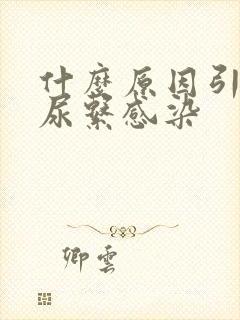 什麼原因引
尿繫感染
卿雲